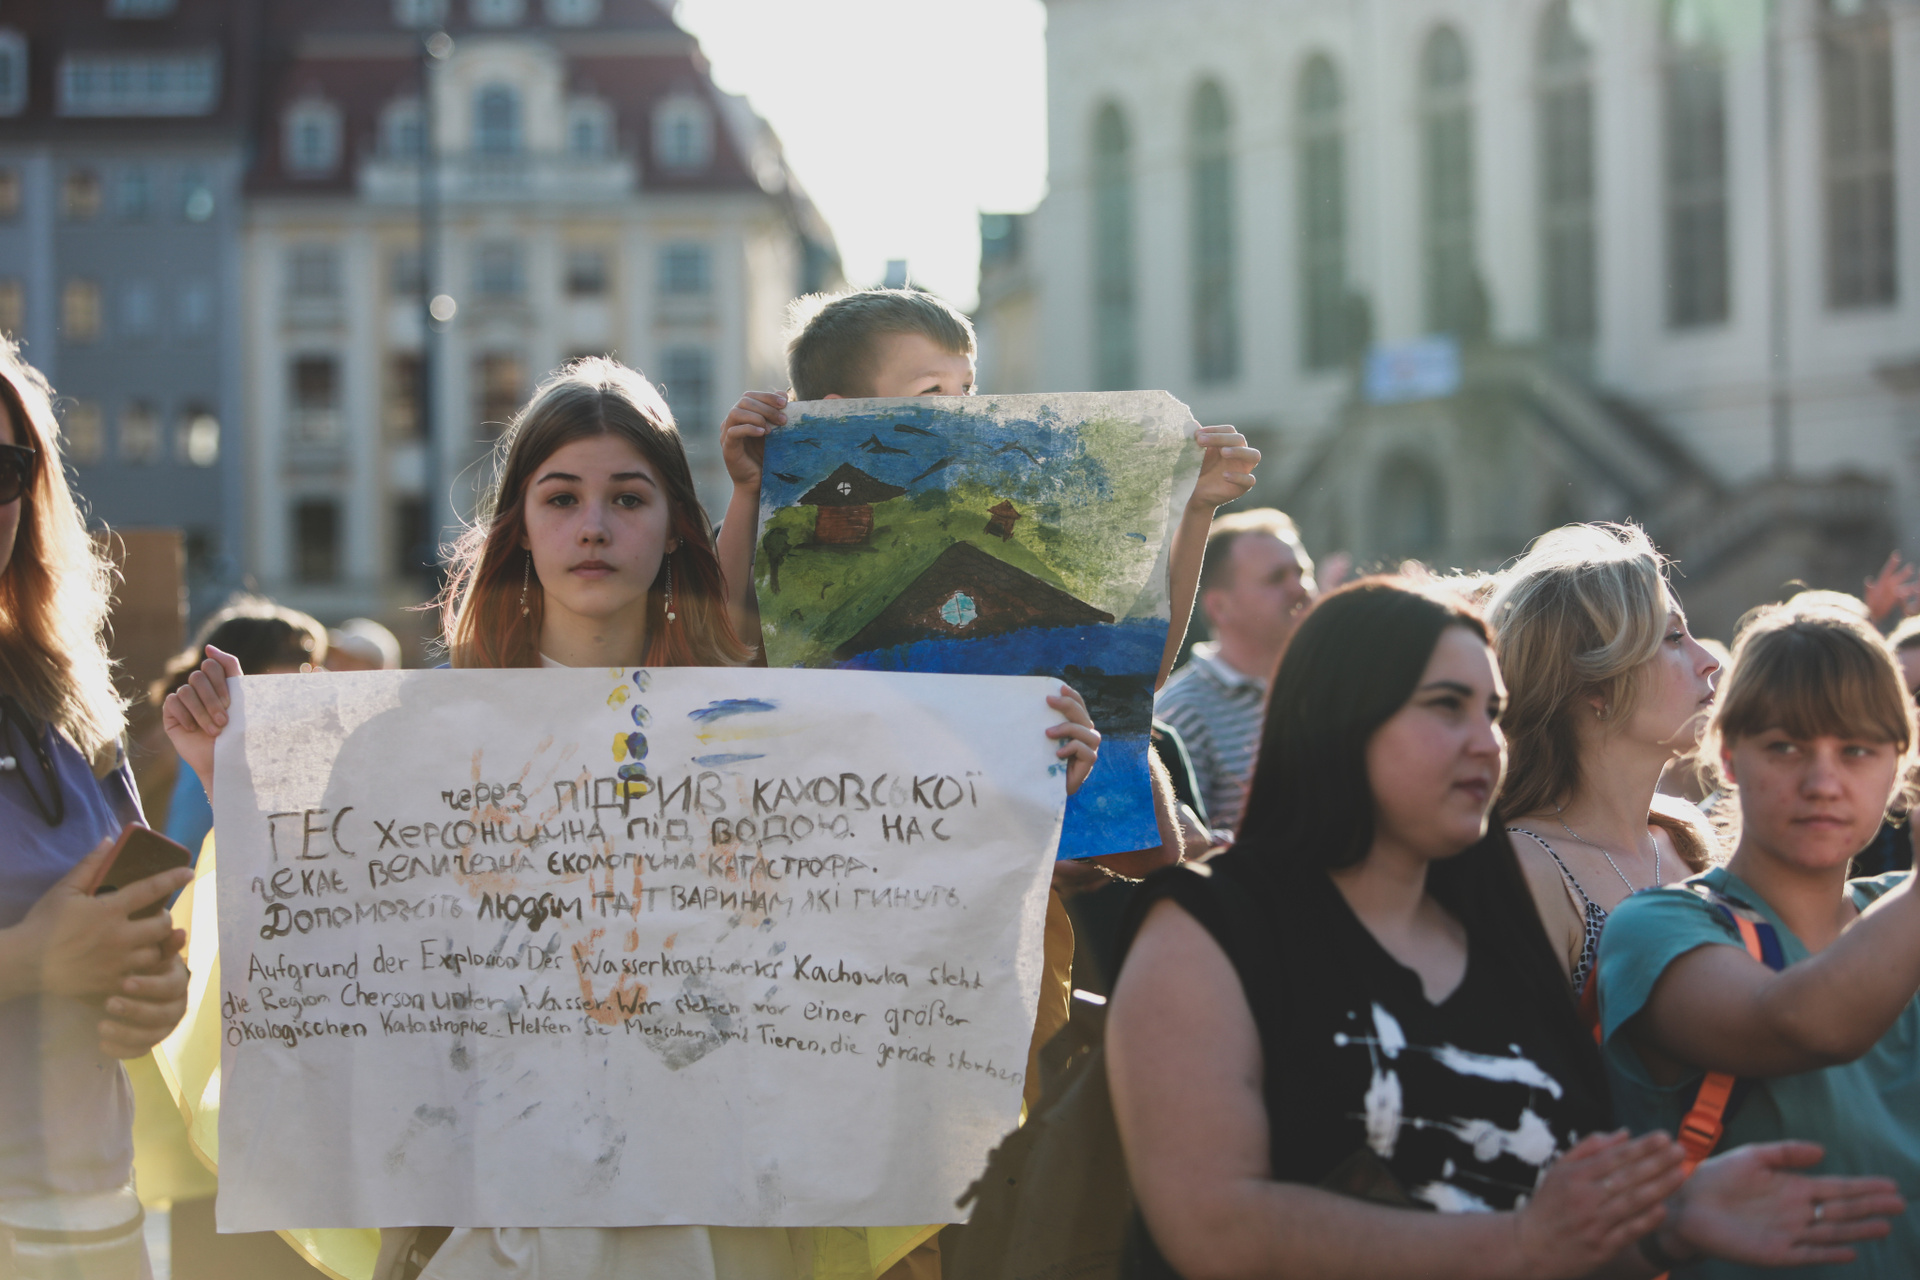 через ПІДРИВ КАХОВСЬКОЇ
ГЕС ХЕРСОНЩИНА ПІД ВОДОЮ. НАС
ЧЕКАЄ ВЕЛИЧЕЗНА ЄКОЛОГІЧНА КАТАСТРОФА.
ДОПОМОЖІТЬ ЛЮДЯМ ТА ТВАРИНАМ ЯКІ ГИНУТЬ.
Aufgrund der Explosion Des Wasserkraftwerks Kachowka steht
die Region Cherson unter Wasser. Wir stehen vor einer größer
ökologischen Katastrophe. Helfen Sie Menschen und Tieren, die gerade sterben